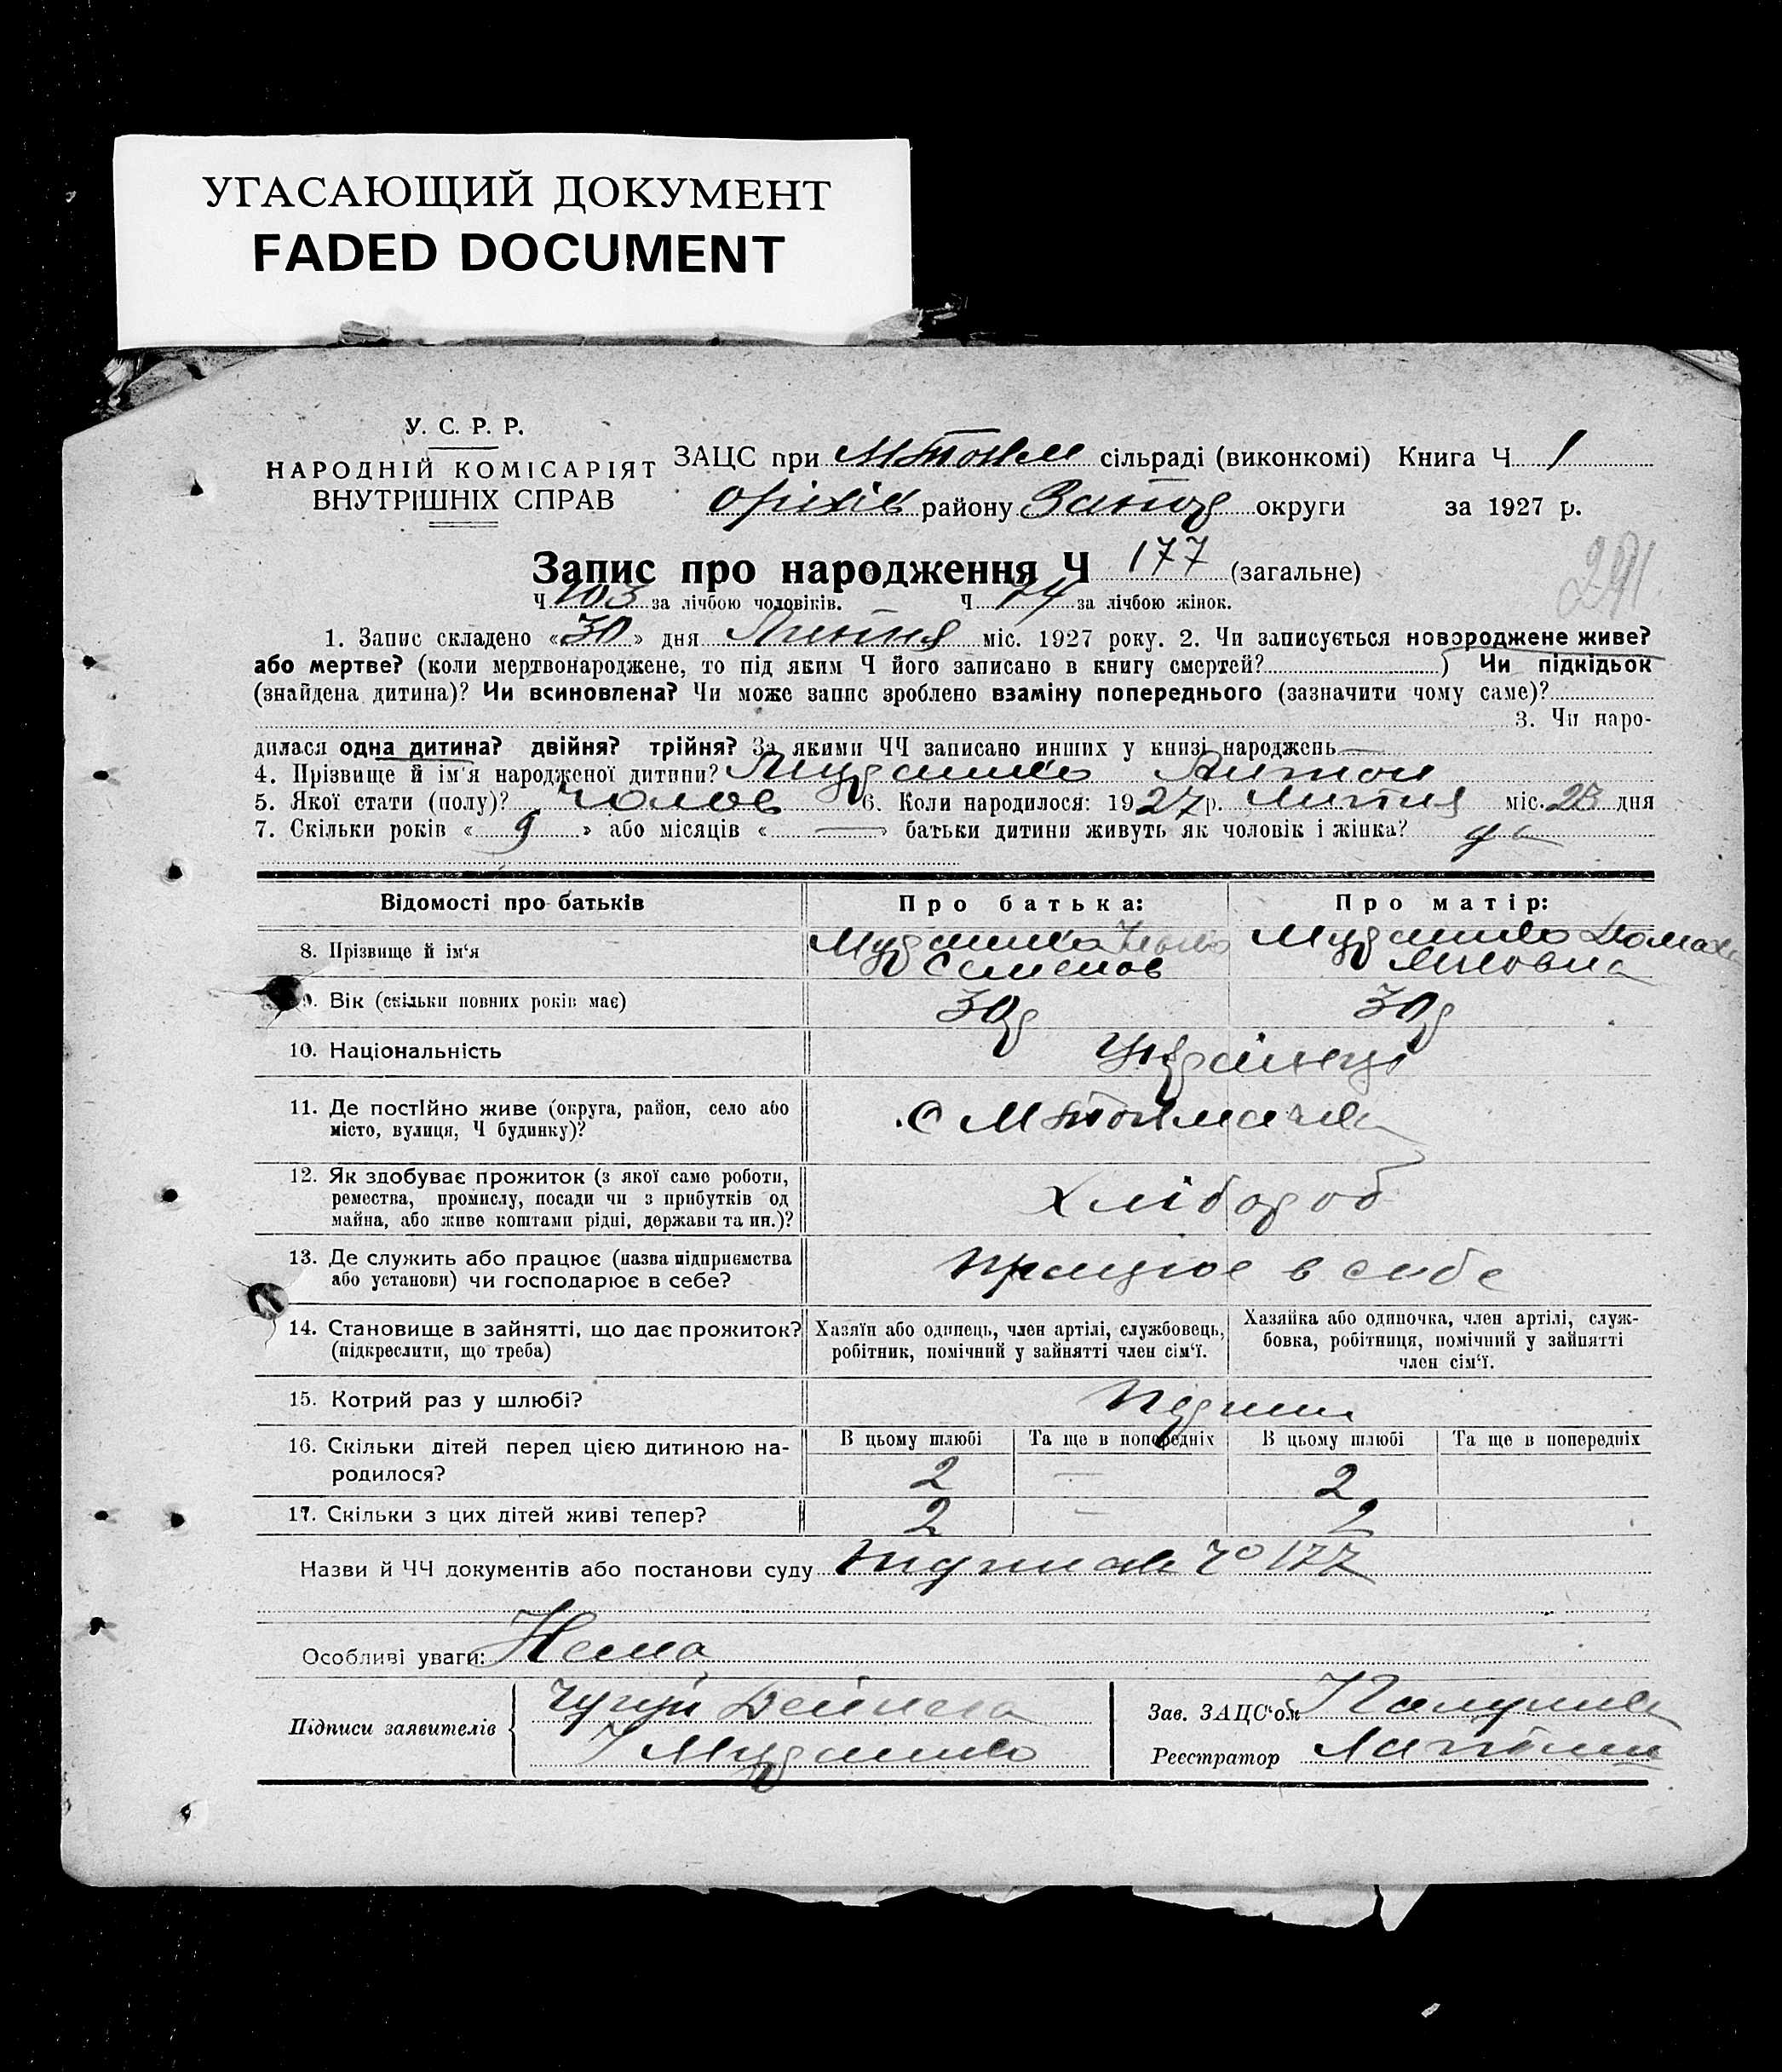 УГАСАЮЩИЙ ДОКУМЕНТ
FADED DOCUMENT
У. С. Р. Р.
НАРОДНІЙ КОМІСАРІЯТ
ВНУТРІШНІХ СПРАВ
ЗАЦС при МТокм сільраді (виконкомі) Книга Ч 1
Оріхів району Запоз округи за 1927 р.
291
Запис про народження Ч 177 (загальне)
Ч 103 за лічбою чоловіків. Ч 74 за лічбою жінок.
1. Запис складено «30» дня Липня міс. 1927 року. 2. Чи записується новороджене живе?
або мертве? (коли мертвонароджене, то під яким Ч його записано в книгу смертей?) Чи підкідьок
(знайдена дитина)? Чи всиновлена? Чи може запис зроблено взаміну попереднього (зазначити чому саме)?
3. Чи наро-
дилася одна дитина? двійня? трійня? За якими ЧЧ записано инших у книзі народжень —
4. Прізвище й ім'я народженої дитини? Антон
5. Якої стати (полу)? чолов 6. Коли народилося: 1927 р. Липня міс. 23 дня
7. Скільки років « 9 » або місяців « — » батьки дитини живуть як чоловік і жінка? да
Відомості про батьків Про батька: Про матір:
8. Прізвище й ім'я
Семенов
9. Вік (скільки повних років має) 30р 30р
10. Національність Українці
11. Де постІйно живе (округа, район, село або
місто, вулиця, Ч будинку)? С МТокмачка
12. Як здобуває прожиток (з якої само роботи,
ремества, промислу, посади чи з прибутків од
майна, або живе коштами рідні, держави та ин.)? Хлібороб
13. Де служить або працює (назва підприємства
або установи) чи господарює в себе? працює в себе
14. Становище в зайнятті, що дає прожиток?
(підкреслити, що треба)
Хазяїн або одинець, член артілі, службовець,
робітник, помічний у зайнятті член сім'ї.
Хазяйка або одиночка, член артілі, служ-
бовка, робітниця, помічний у зайнятті
член сім'ї.
15. Котрий раз у шлюбі?
16. Скільки дітей перед цією дитиною на-
родилося?
В цьому шлюбі Та ще в попередніх В цьому шлюбі Та ще в попередніх
2 — 2
17. Скільки з цих дітей живі тепер? 2 — 2
Назви й ЧЧ документів або постанови суду 177
Особливі уваги: Нема
Підписи заявителів
Зав. ЗАЦС'ом
Реєстратор